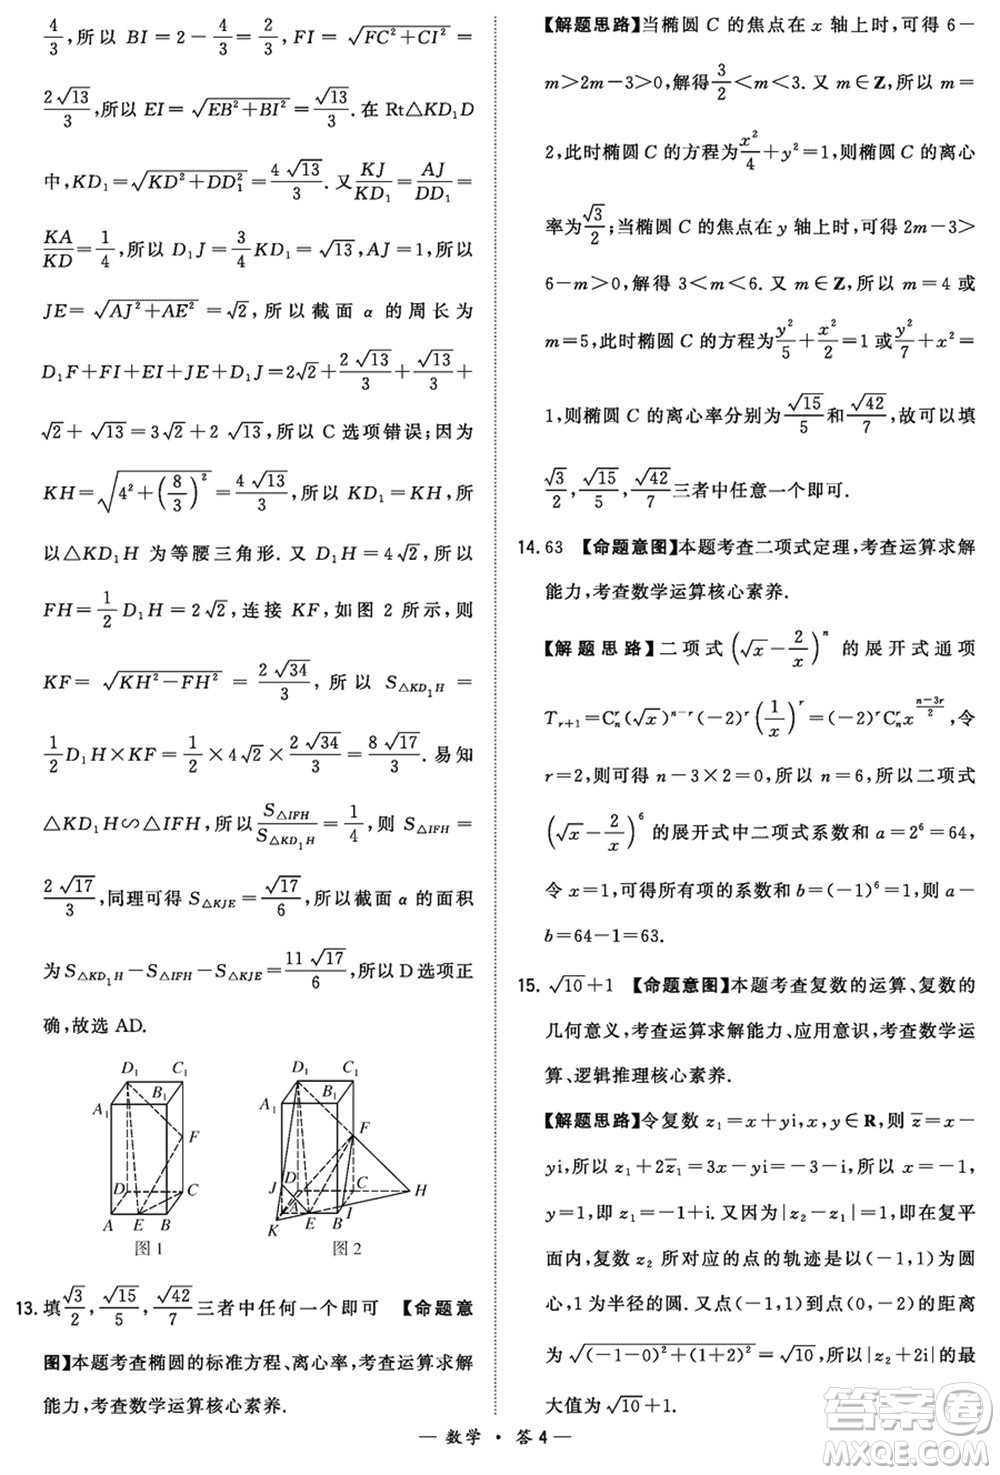 4/3,所以 BI=2-4/3=2/3,FI=√(FC²+CI²)=
2√13/3,所以 EI=√(EB²+BI²)=√13/3.在 Rt△KD₁D
中,KD₁=√(KD²+DD₁²)=4√13/3.又KJ/KD₁=AJ/DD₁=
KA/KD=1/4,所以 D₁J=3/4KD₁=√13,AJ=1,所以
JE=√(AJ²+AE²)=√2,所以截面 α 的周长为
D₁F+FI+EI+JE+D₁J=2√2+2√13/3+√13/3+
√2+√13=3√2+2√13,所以 C 选项错误;因为
KH=√(4²+(8/3)²)=4√13/3,所以 KD₁=KH,所
以△KD₁H 为等腰三角形.又 D₁H=4√2,所以
FH=1/2D₁H=2√2,连接 KF,如图 2 所示,则
KF=√(KH²-FH²)=2√34/3,所以 S△KD₁H=
1/2D₁H×KF=1/2×4√2×2√34/3=8√17/3.易知
△KD₁H∽△IFH,所以S△IFH/S△KD₁H=1/4,则 S△IFH=
2√17/3,同理可得 S△KJE=√17/6,所以截面 α 的面积
为S△KD₁H-S△IFH-S△KJE=11√17/6,所以 D 选项正
确,故选 AD.
D₁ C₁ A₁ B₁ F D C A E B
图 1
D₁ C₁ A₁ B₁ F J D C H A K E B I
图 2
13.填√3/2,√15/5,√42/7三者中任何一个即可 【命题意
图】本题考查椭圆的标准方程、离心率,考查运算求解
能力,考查数学运算核心素养.
【解题思路】当椭圆 C 的焦点在 x 轴上时,可得 6-
m>2m-3>0,解得3/2<m<3.又 m∈Z,所以 m=
2,此时椭圆 C 的方程为x²/4+y²=1,则椭圆 C 的离心
率为√3/2;当椭圆 C 的焦点在 y 轴上时,可得 2m-3>
6-m>0,解得 3<m<6.又 m∈Z,所以 m=4 或
m=5,此时椭圆 C 的方程为y²/5+x²/2=1或y²/7+x²=
1,则椭圆 C 的离心率分别为√15/5和√42/7,故可以填
√3/2,√15/5,√42/7三者中任意一个即可.
14.63 【命题意图】本题考查二项式定理,考查运算求解
能力,考查数学运算核心素养.
【解题思路】二项式(√x-2/x)ⁿ的展开式通项
Tr+1=Cₙʳ(√x)ⁿ⁻ʳ(-2)ʳ(1/x)ʳ=(-2)ʳCₙʳx^((n-3r)/2),令
r=2,则可得 n-3×2=0,所以 n=6,所以二项式
(√x-2/x)⁶的展开式中二项式系数和 a=2⁶=64,
令 x=1,可得所有项的系数和 b=(-1)⁶=1,则 a-
b=64-1=63.
15.√10+1 【命题意图】本题考查复数的运算、复数的
几何意义,考查运算求解能力、应用意识,考查数学运
算、逻辑推理核心素养.
【解题思路】令复数 z₁=x+yi,x,y∈R,则 z̄=x-
yi,所以 z₁+2z̄₁=3x-yi=-3-i,所以 x=-1,
y=1,即 z₁=-1+i.又因为|z₂-z₁|=1,所以在复平
面内,复数 z₂ 所对应的点的轨迹是以(-1,1)为圆
心,1 为半径的圆.又点(-1,1)到点(0,-2)的距离
为√((-1-0)²+(1+2)²)=√10,所以|z₂+2i|的最
大值为√10+1.
— 数学 · 答 4 —
答案圈
MXQE.COM